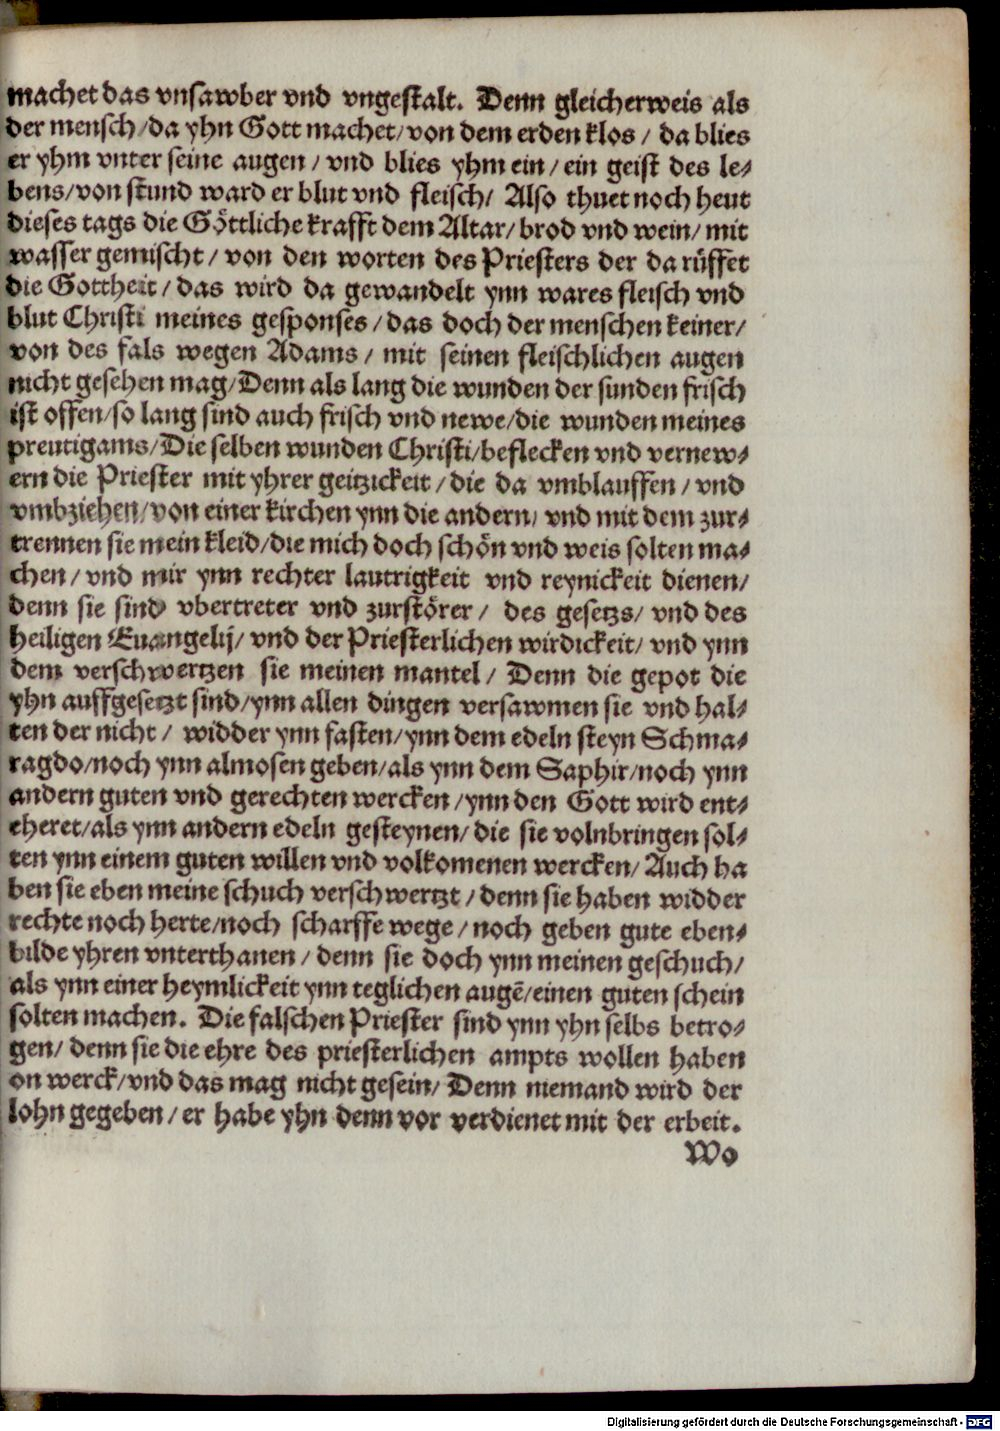 machet das vnsawber vnd vngestalt. Denn gleicherweis als
der mensch/da yhn Gott machet/von dem erden klos / da blies
er yhm vnter seine augen / vnd blies yhm ein / ein geist des le-
bens/von stund ward er blut vnd fleisch/ Also thuet noch heut
dieses tags die Göttliche krafft dem Altar/ brod vnd wein/ mit
wasser gemischt / von den worten des Priesters der da rüffet
die Gottheit / das wird da gewandelt ynn wares fleisch vnd
blut Christi meines gesponses / das doch der menschen keiner/
von des fals wegen Adams / mit seinen fleischlichen augen
nicht gesehen mag/Denn als lang die wunden der sunden frisch
ist offen/so lang sind auch frisch vnd newe/die wunden meines
preutigams/Die selben wunden Christi/beflecken vnd vernew-
ern die Priester mit yhrer geitzickeit / die da vmblauffen / vnd
vmbziehen/von einer kirchen ynn die andern/ vnd mit dem zur-
trennen sie mein kleid/die mich doch schön vnd weis solten ma-
chen / vnd mir ynn rechter lautrigkeit vnd reynickeit dienen/
denn sie sind vbertreter vnd zurstörer / des gesetzs/ vnd des
heiligen Euangelij/ vnd der Priesterlichen wirdickeit/ vnd ynn
dem verschwertzen sie meinen mantel / Denn die gepot die
yhn auffgesetzt sind/ynn allen dingen versawmen sie vnd hal-
ten der nicht / widder ynn fasten/ynn dem edeln steyn Schma-
ragdo/noch ynn almosen geben/als ynn dem Saphir/noch ynn
andern guten vnd gerechten wercken /ynn den Gott wird ent-
eheret/als ynn andern edeln gesteynen/ die sie volnbringen sol-
ten ynn einem guten willen vnd volkomenen wercken/ Auch ha
ben sie eben meine schuch verschwertzt / denn sie haben widder
rechte noch herte/noch scharffe wege / noch geben gute eben-
bilde yhren vnterthanen / denn sie doch ynn meinen geschuch/
als ynn einer heymlickeit ynn teglichen augē/einen guten schein
solten machen. Die falschen Priester sind ynn yhn selbs betro-
gen/ denn sie die ehre des priesterlichen ampts wollen haben
on werck/vnd das mag nicht gesein/ Denn niemand wird der
lohn gegeben / er habe yhn denn vor verdienet mit der erbeit.
Wo
Digitalisierung gefördert durch die Deutsche Forschungsgemeinschaft - DFG